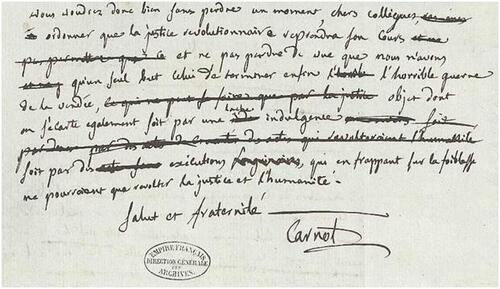 vous voudrez donc bien sans perdre un moment, chers collègues
ordonner que la justice revolutionnaire reprendra son cours et ne
perpmettre que et ne pas perdre de vue que nous n'avons
qu'un seul but celui de terminer enfin l'horrible guerre
de la vendée, ce qui ne peut se faire que par la justice objet dont
on s'ecarte egalement soit par une lache indulgence
qui revolteroient l'humanité
soit par des executions, qui en frappant sur la foiblesse
ne pourroient que revolter la justice et l'humanité.
Salut et fraternité
Carnot
EMPIRE FRANÇAIS
DIRECTION GÉNÉRALE
DES
ARCHIVES.